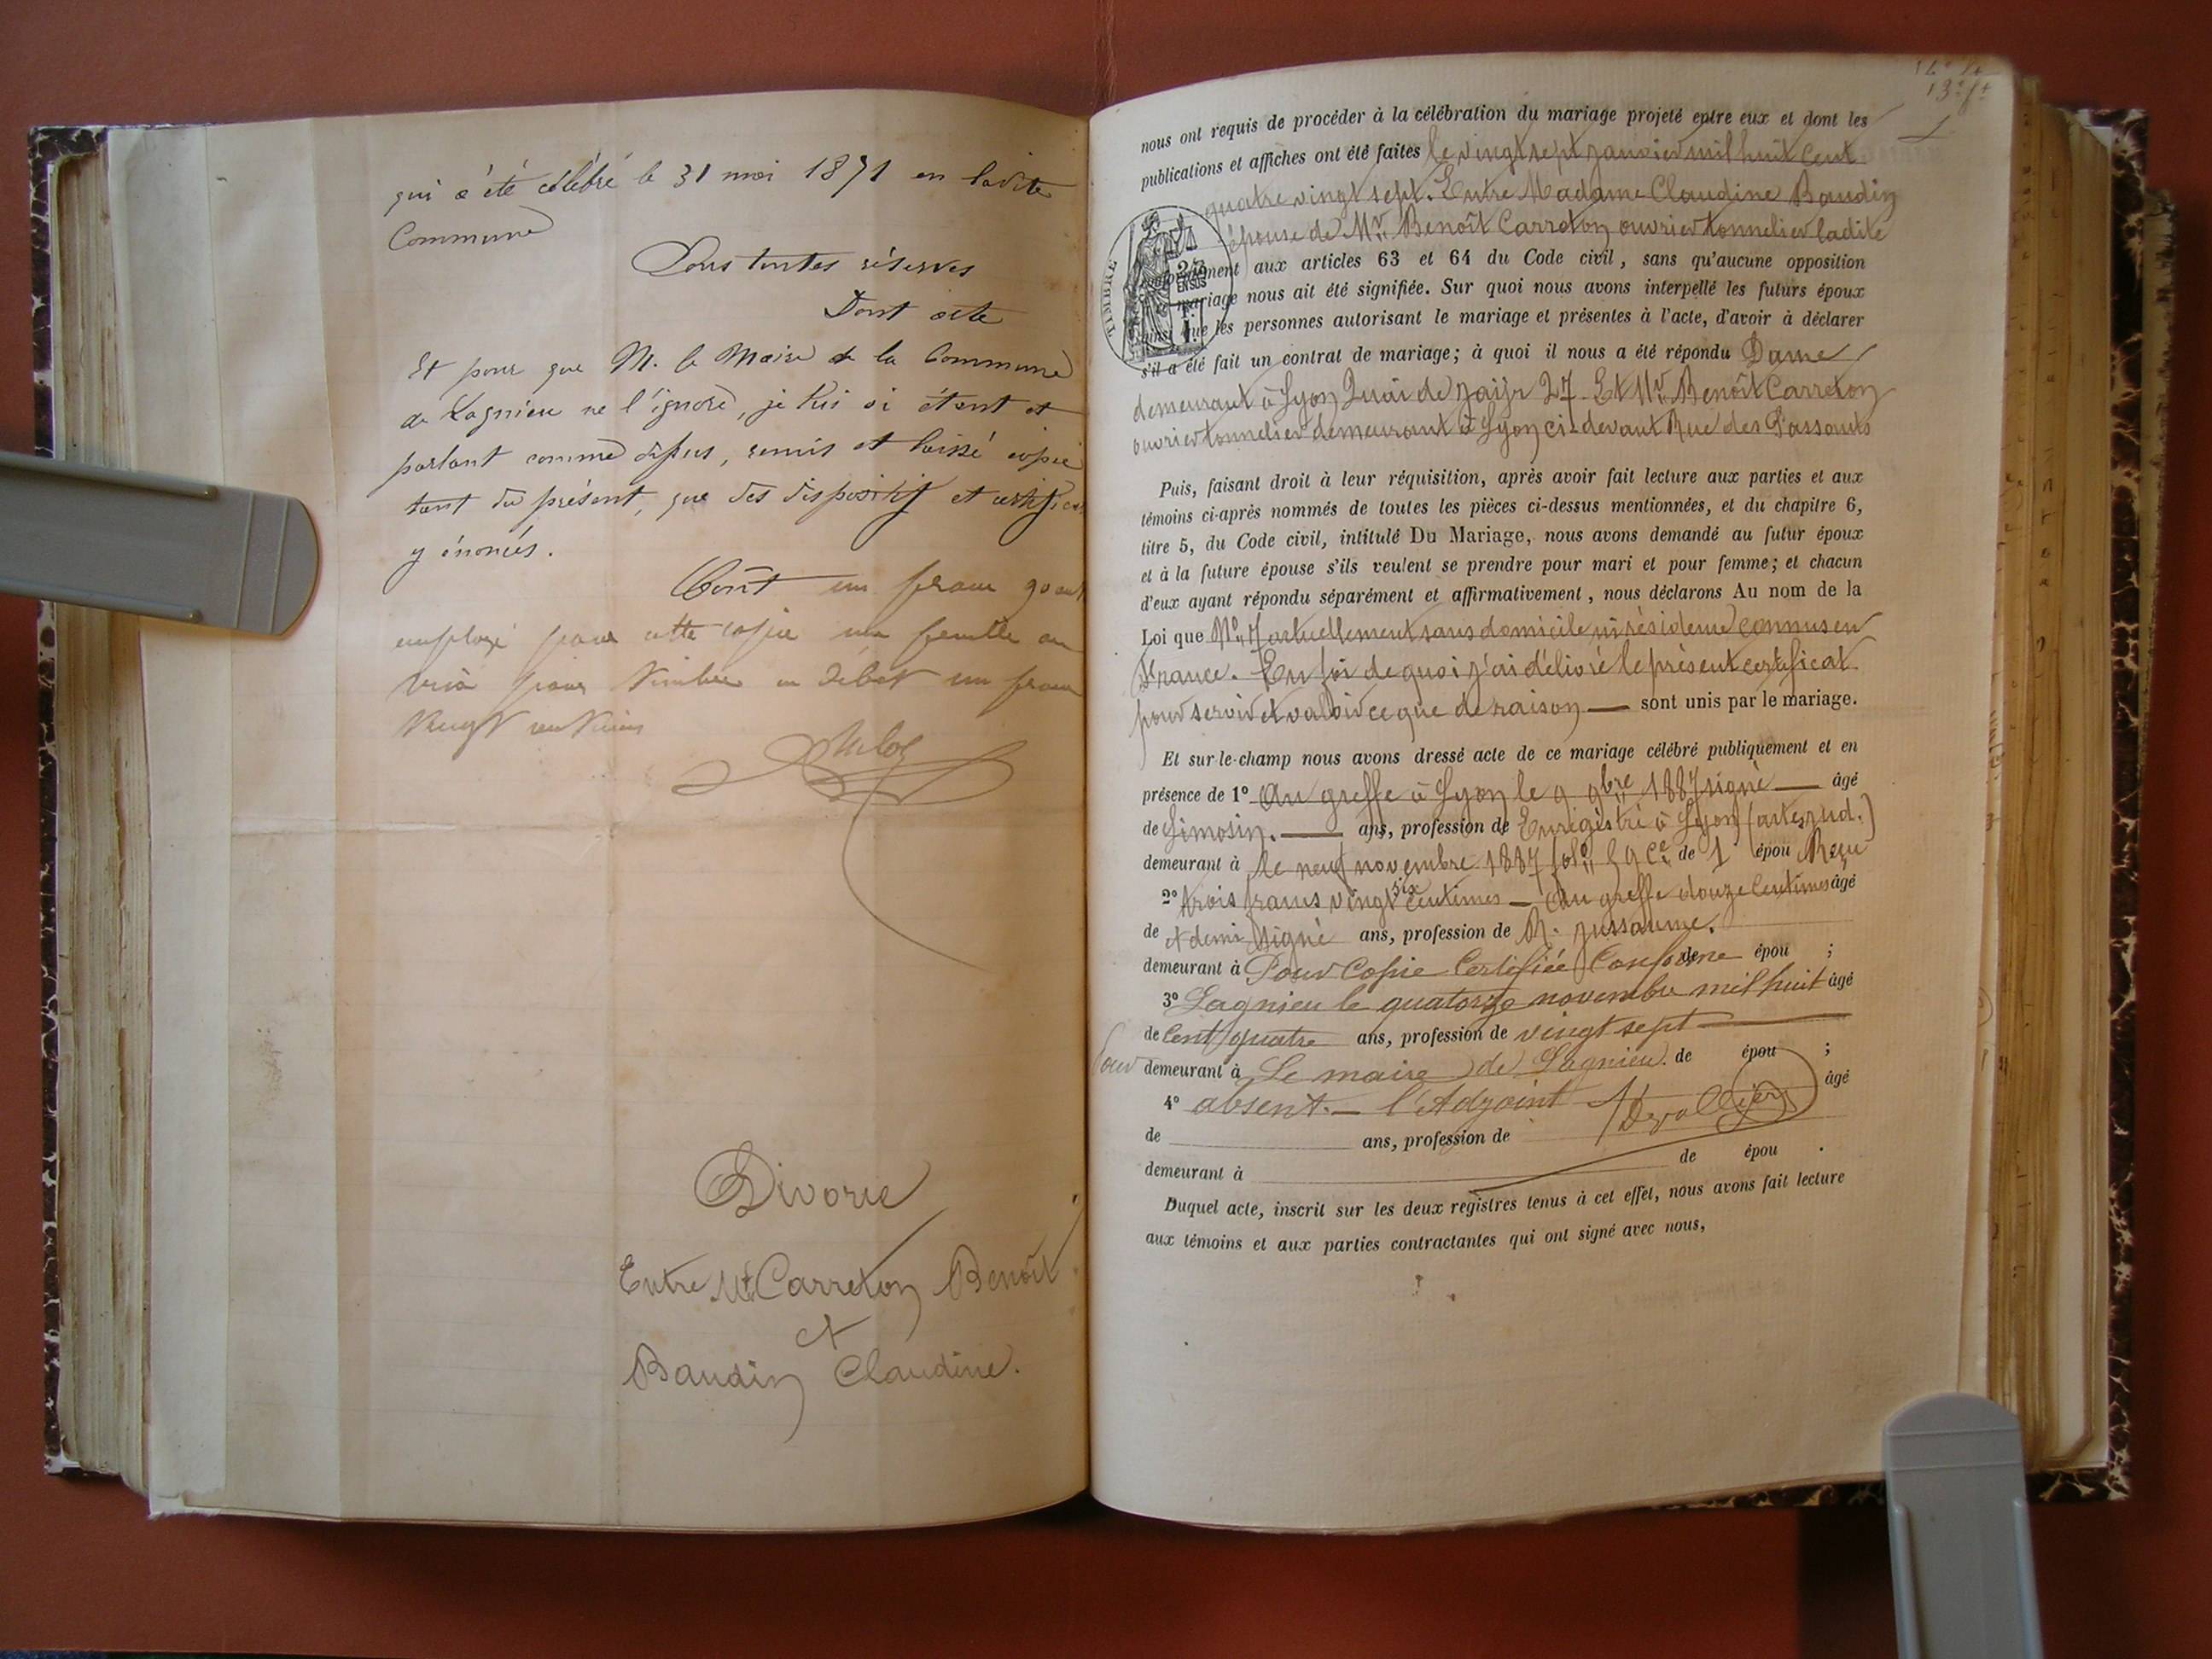 qui a été célébré le 31 mai 1871 en ladite
Commune
Sous toutes réserves
Dont acte
Et pour que M. le Maire de la Commune
de Lagnieu ne l'ignore, je lui ai étant et
parlant comme dessus, remis et laissé copie
tant du présent, que des dispositif et certificat
y énoncés.
Coût un franc 90
employé pour cette copie une feuille au
visa pour timbre en débet un franc
vingt centimes
Divorce
Entre Mr Carreton Benoît
et
Baudin Claudine.
13e ft
nous ont requis de procéder à la célébration du mariage projeté entre eux et dont les
publications et affiches ont été faites le vingt sept janvier mil huit cent
quatre vingt sept. Entre Madame Claudine Baudin
épouse de Mr Benoît Carreton ouvrier tonnelier ladite
TIMBRE
25
EN SUS
conformément aux articles 63 et 64 du Code civil, sans qu'aucune opposition
mariage nous ait été signifiée. Sur quoi nous avons interpellé les futurs époux
ainsi que les personnes autorisant le mariage et présentes à l'acte, d'avoir à déclarer
s'il a été fait un contrat de mariage; à quoi il nous a été répondu Dame
demeurant à Lyon Quai de 27 Et Mr Benoît Carreton
ouvrier tonnelier demeurant à Lyon ci-devant Rue des Passants
Puis, faisant droit à leur réquisition, après avoir fait lecture aux parties et aux
témoins ci-après nommés de toutes les pièces ci-dessus mentionnées, et du chapitre 6,
titre 5, du Code civil, intitulé Du Mariage, nous avons demandé au futur époux
et à la future épouse s'ils veulent se prendre pour mari et pour femme; et chacun
d'eux ayant répondu séparément et affirmativement, nous déclarons Au nom de la
Loi que No 7 actuellement sans domicile ni résidence connus en
France. En foi de quoi j'ai délivré le présent certificat
pour servir et valoir ce que de raison — sont unis par le mariage.
Et sur-le-champ nous avons dressé acte de ce mariage célébré publiquement et en
présence de 1° Au greffe à Lyon le 9 9bre 1887 signé — âgé
de Limosin. — ans, profession de Enregistré à Lyon (actes jud.)
demeurant à le neuf novembre 1887 fol° 59 Ce de 1 épou Reçu
2° trois francs vingt six centimes — Au greffe douze centimes âgé
de et demi Signé ans, profession de M. Jussaume.
demeurant à Pour Copie Certifiée Conforme de épou ;
3° Lagnieu le quatorze novembre mil huit âgé
de Cent quatre ans, profession de vingt sept —
Pour demeurant à Le maire de Lagnieu. de épou ;
4° absent. — l'Adjoint âgé
de ans, profession de
demeurant à de épou .
Duquel acte, inscrit sur les deux registres tenus à cet effet, nous avons fait lecture
aux témoins et aux parties contractantes qui ont signé avec nous,